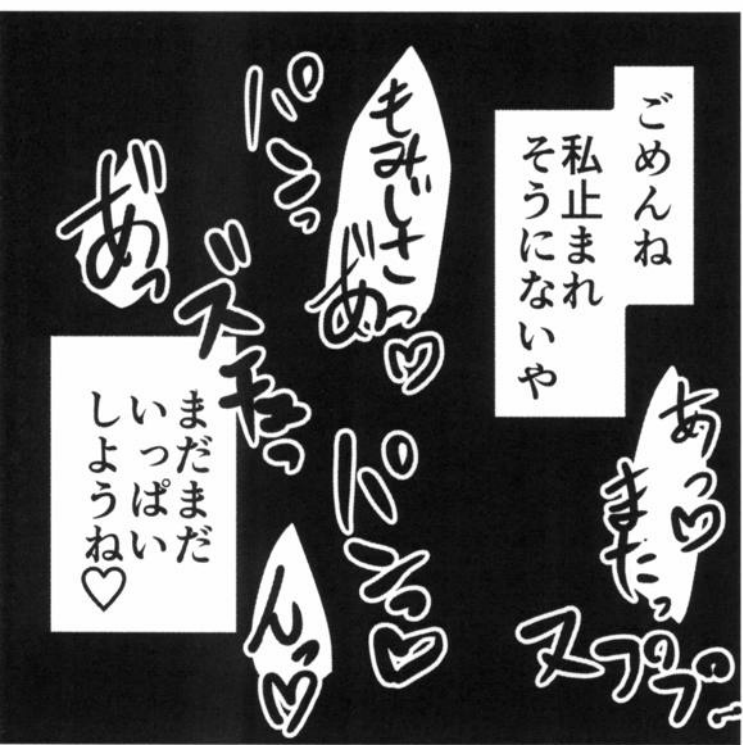 ごめんね
私止まれ
そうにないや
あっ♡
またっ
ヌプププ…
もみじさ
あ゛っ♡
パンっ
あ゛っ
ズチュっ
パンっ♡
んっ♡
まだまだ
いっぱい
しようね♡